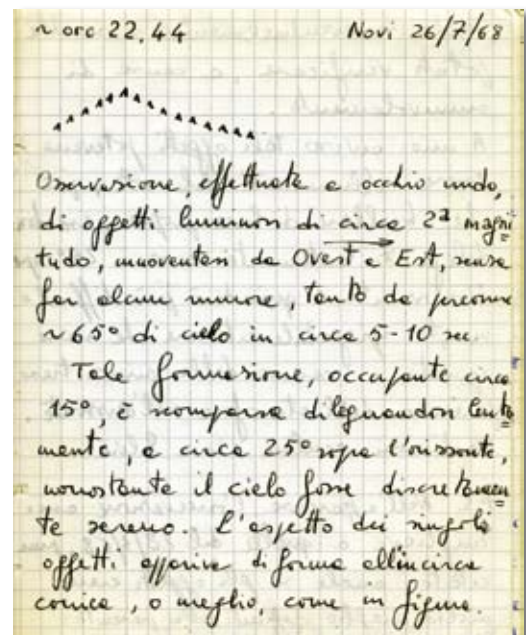 ~ ore 22.44 Novi 26/7/68
Osservazione, effettuata a occhio nudo,
di oggetti luminosi di circa 2ª magni
tudo, muoventesi da Ovest a Est, senza
far alcun rumore, tanto da percorrere
~65° di cielo in circa 5-10 sec.
Tale formazione, occupante circa
15°, è scomparsa dileguandosi lenta
mente, a circa 25° sopra l'orizzonte,
nonostante il cielo fosse discretamen
te sereno. L'aspetto dei singoli
oggetti appariva di forma all'incirca
conica, o meglio, come in figura.